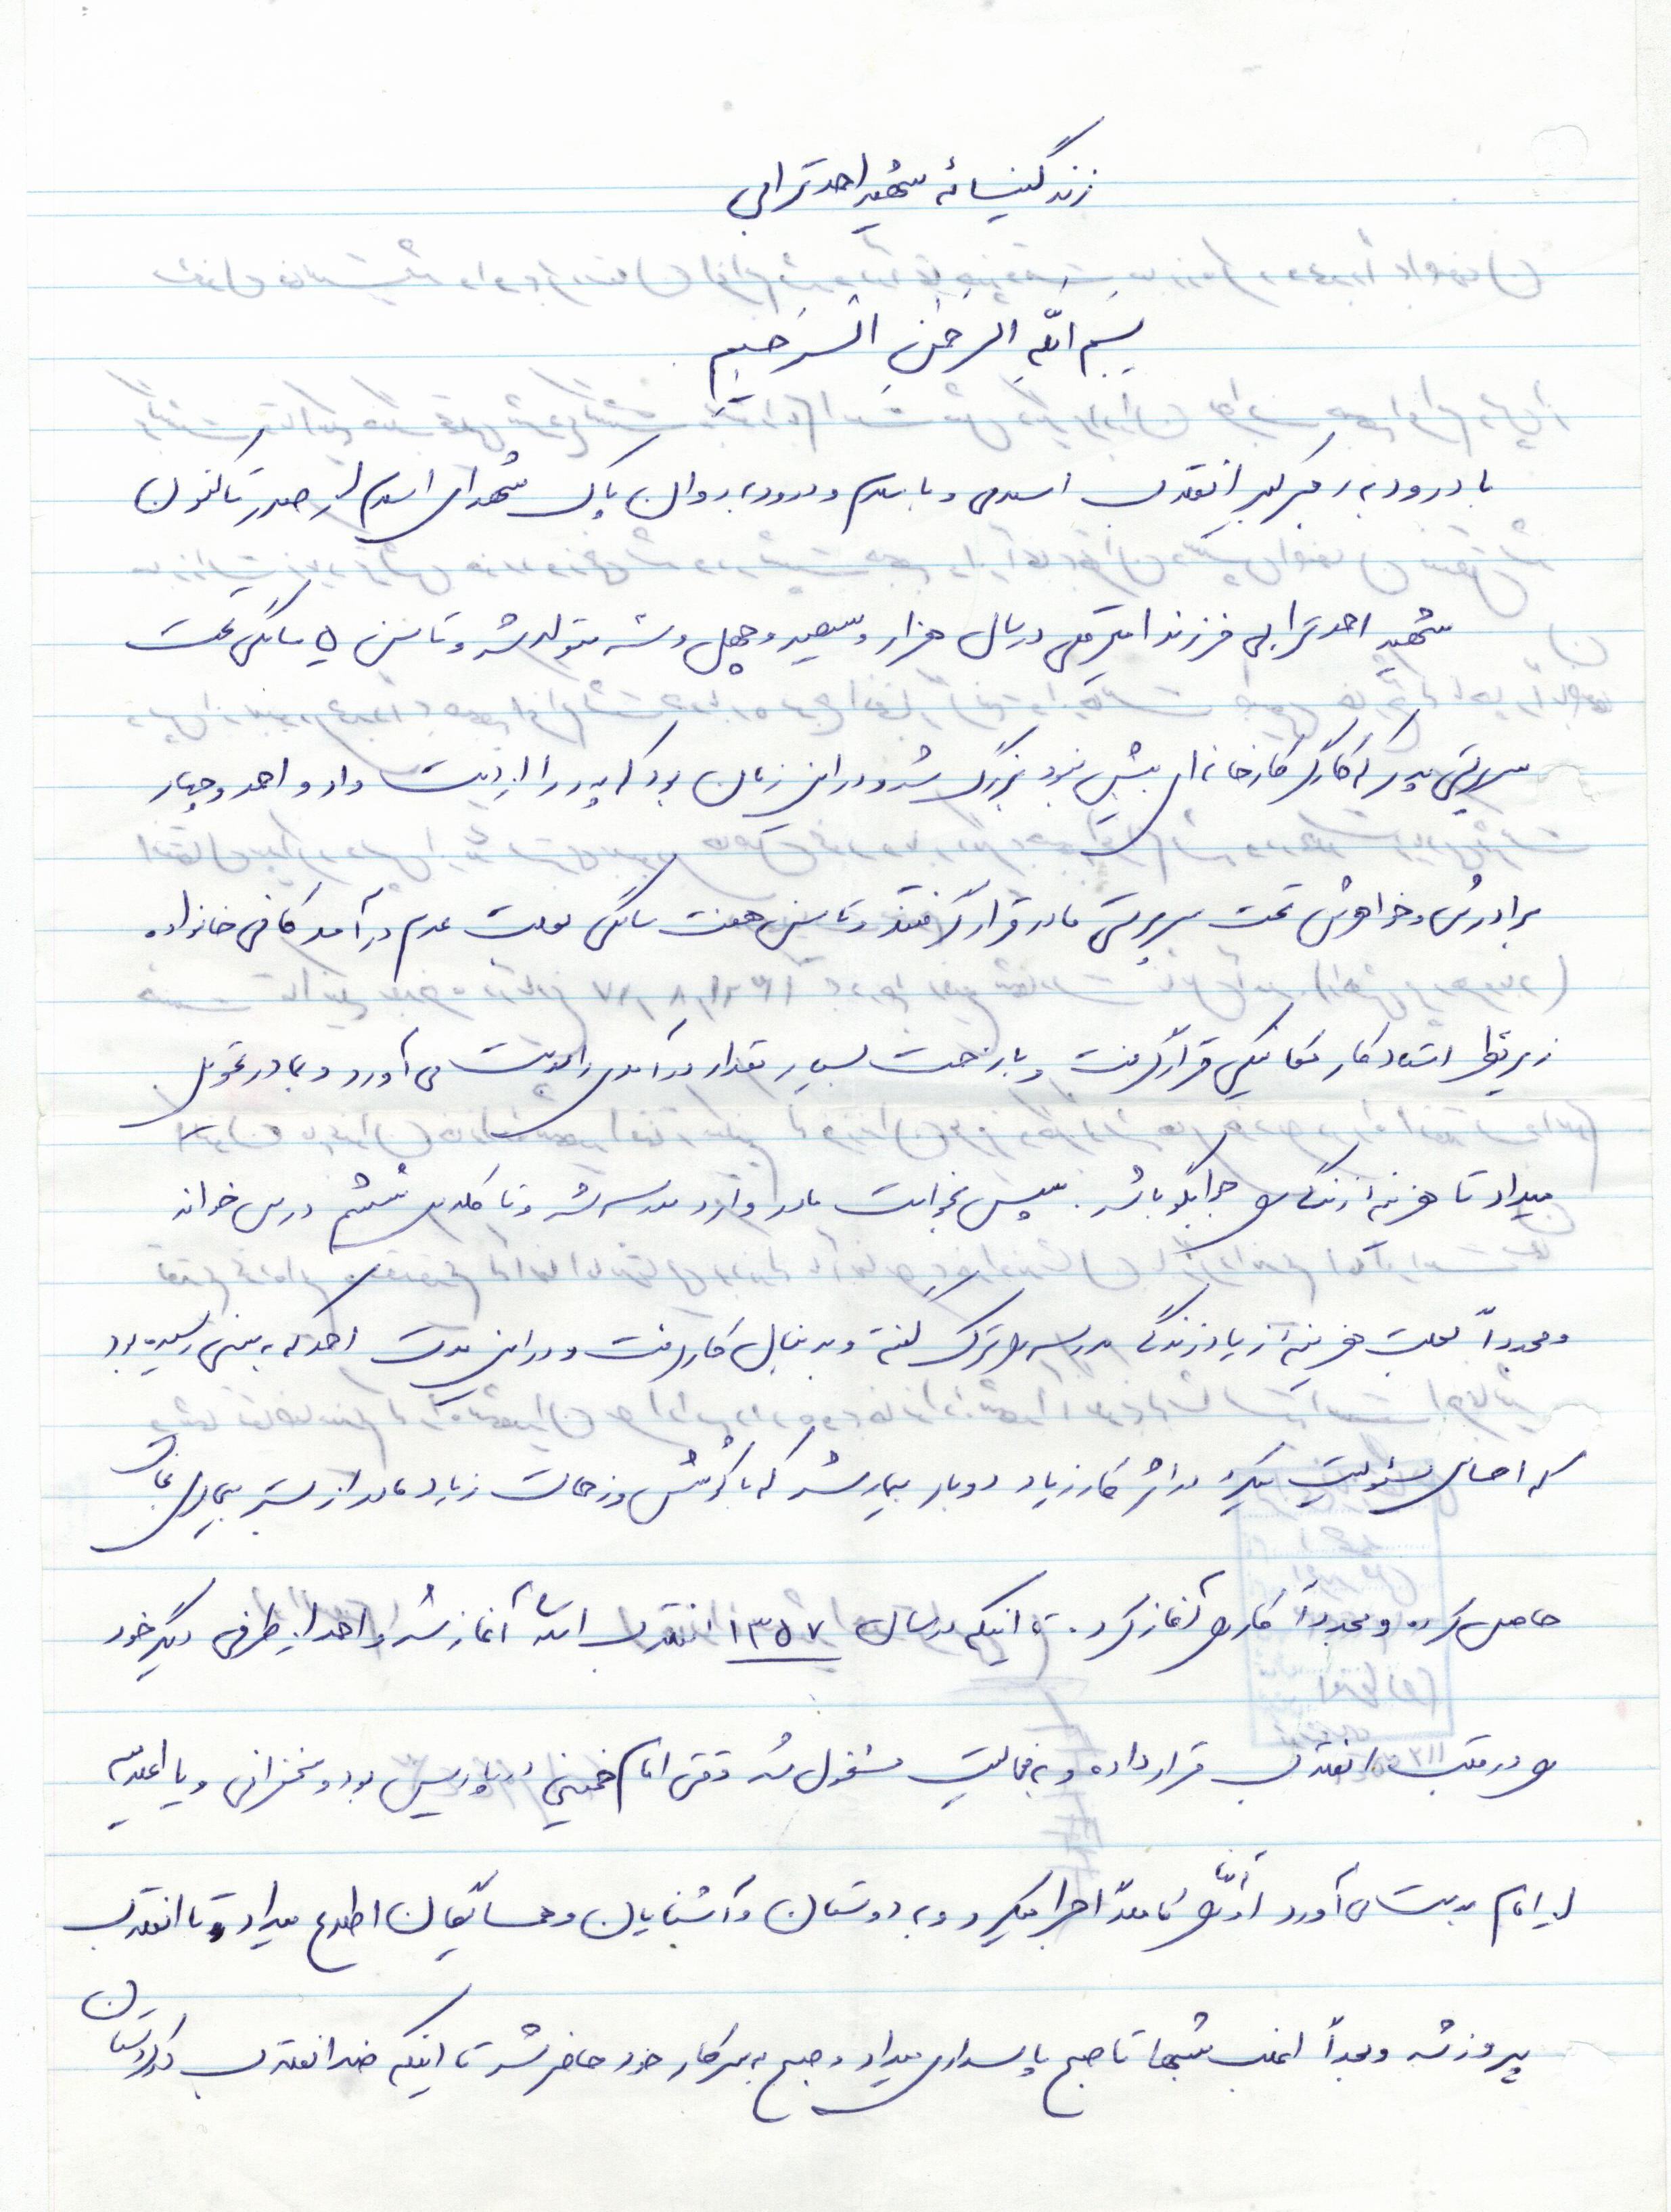 زندگینامه شهید احمد ترابی
بسم الله الرحمن الرحیم
با درود به رهبر کبیر انقلاب اسلامی و با سلام و درود به روان پاک شهدای اسلام از صدر تاکنون
شهید احمد ترابی فرزند امیرقلی در سال هزار و سیصد و چهل و سه متولد شد و تا سن ۵ سالگی تحت
سرپرستی پدر که کارگر کارخانه ای بیش نبود بزرگ شد و در این زمان بود که پدر را از دست داد و احمد و چهار
برادرش و خواهرش تحت سرپرستی مادر قرار گرفتند و تا سن هفت سالگی بعلت عدم درآمد کافی خانواده
زیر نظر استاد کار مکانیکی قرار گرفت و با زحمت بسیار مقدار درآمدی را بدست می آورد و بمادر تحویل
میداد تا هزینه زندگی را جوابگو باشد. سپس بخواست مادر وارد مدرسه شد و تا کلاس ششم درس خواند
و مجدداً بعلت هزینه زیاد زندگی مدرسه را ترک گفته و بدنبال کار رفت و در این مدت احمد که به سنی رسیده بود
که احساس مسئولیت میکرد در اثر کار زیاد دوبار بیمار شد که با کوشش و زحمات زیاد مادر از بستر بیماری نجات
حاصل کرده و مجدداً کار را آغاز کرد. تا اینکه در سال ۱۳۵۷ انقلاب اسلامی آغاز شد و احمد از طرفی دیگر خود
را در قلب انقلاب قرار داده و به فعالیت مشغول شد وقتی امام خمینی در پاریس بود و سخنرانی و یا اعلامیه
از امام بدست می آورد آنرا کاملاً اجرا میکرد و به دوستان و آشنایان و همسایگان اطلاع میداد تا انقلاب
پیروز شد و بعداً اغلب شبها تا صبح پاسداری میداد و صبح به سر کار خود حاضر شد تا اینکه ضد انقلاب در کردستان